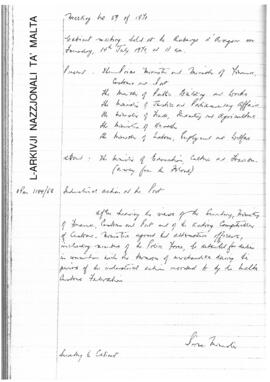 L-ARKIVJI NAZZJONALI TA' MALTA
Meeting No 59 of 19
Cabinet meeting held at the Auberge d'Aragon on
10th July 19 at 11 am.
Present : The Prime Minister and Minister of Finance,
Customs and Port
The Minister of Public Building and Works
The Minister of Justice and Parliamentary Affairs
The Minister of Trade, Industry and Agriculture
The Minister of Health
The Minister of Labour, Employment and Welfare
Absent : The Minister of Education, Culture and Tourism
(away from the Island)
Industrial action at the Port
After hearing the views of the Secretary, Ministry
of Finance, Customs and Port and of the Acting Comptroller
of Customs, Ministers agreed that alternative officers,
including members of the Police Force, be detailed for duties
in connection with the of merchandise during the
period of the industrial action resorted to by the Malta
Customs Federation
Prime Minister
Secretary to Cabinet